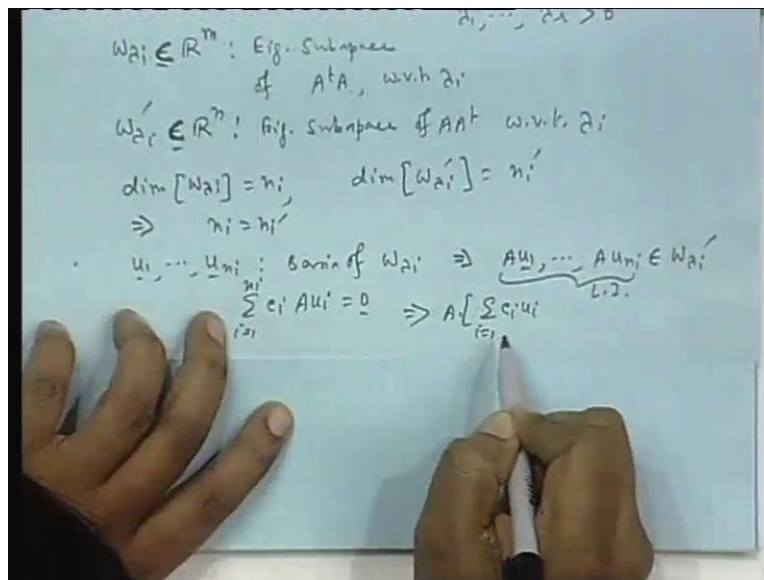 λ1, ..., λr > 0
Wλi ⊆ R^m : Eig. Subspace
of AᵗA, w.r.t. λi
W'λi ⊆ R^n : Eig. Subspace of AAᵗ w.r.t. λi
dim [Wλi] = ni, dim [W'λi] = ni'
⇒ ni = ni'
u1, ..., uni : Basis of Wλi ⇒ Au1, ..., Auni ∈ W'λi
L.I.
∑_{i=1}^{ni} ci Aui = 0 ⇒ A[∑_{i=1} ci ui